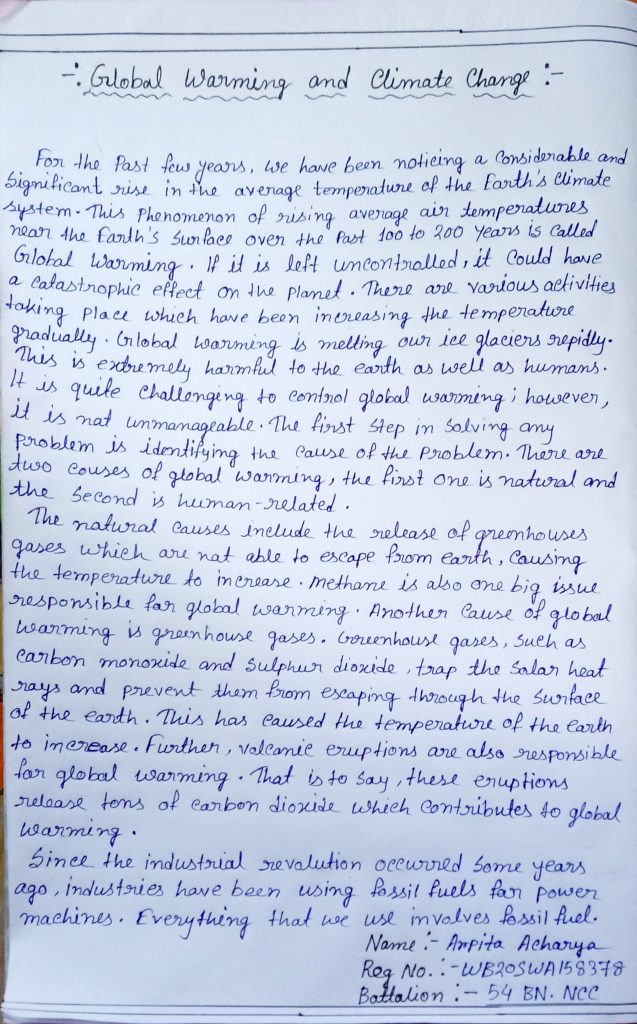 -: Global Warming and Climate Change :-
For the Past few years, we have been noticing a Considerable and
Significant rise in the average temperature of the Earth's Climate
System. This Phenomenon of rising average air temperatures
near the Earth's Surface over the Past 100 to 200 Years is called
Global Warming. If it is left uncontrolled, it Could have
a catastrophic effect on the planet. There are various activities
taking place which have been increasing the temperature
gradually. Global warming is melting our ice glaciers repidly.
This is extremely harmful to the earth as well as humans.
It is quite Challenging to control global warming; however,
it is nat unmanageable. The first Step in Solving any
Problem is identifying the Cause of the Problem. There are
two couses of global warming, the first one is natural and
the Second is human-related.
The natural Causes include the release of greenhouses
gases which are nat able to escape from earth, Causing
the temperature to increase. Methane is also one big issue
responsible far global warming. Another Cause of global
warming is greenhouse gases. Greenhouse gases, Such as
carbon monoxide and Sulphur dioxide, trap the Salar heat
rays and prevent them from escaping through the Surface
of the earth. This has caused the temperature of the earth
to increase. Further, volcanic eruptions are also responsible
far global warming. That is to Say, these eruptions
release tons of carbon dioxide which Contributes to global
warming.
Since the industrial revalution occurred Some years
ago, industries have been using fossil fuels far power
machines. Everything that we use involves fossil fuel.
Name :- Arpita Acharya
Reg No. :- WB20SWA158378
Battalion :- 54 BN. NCC